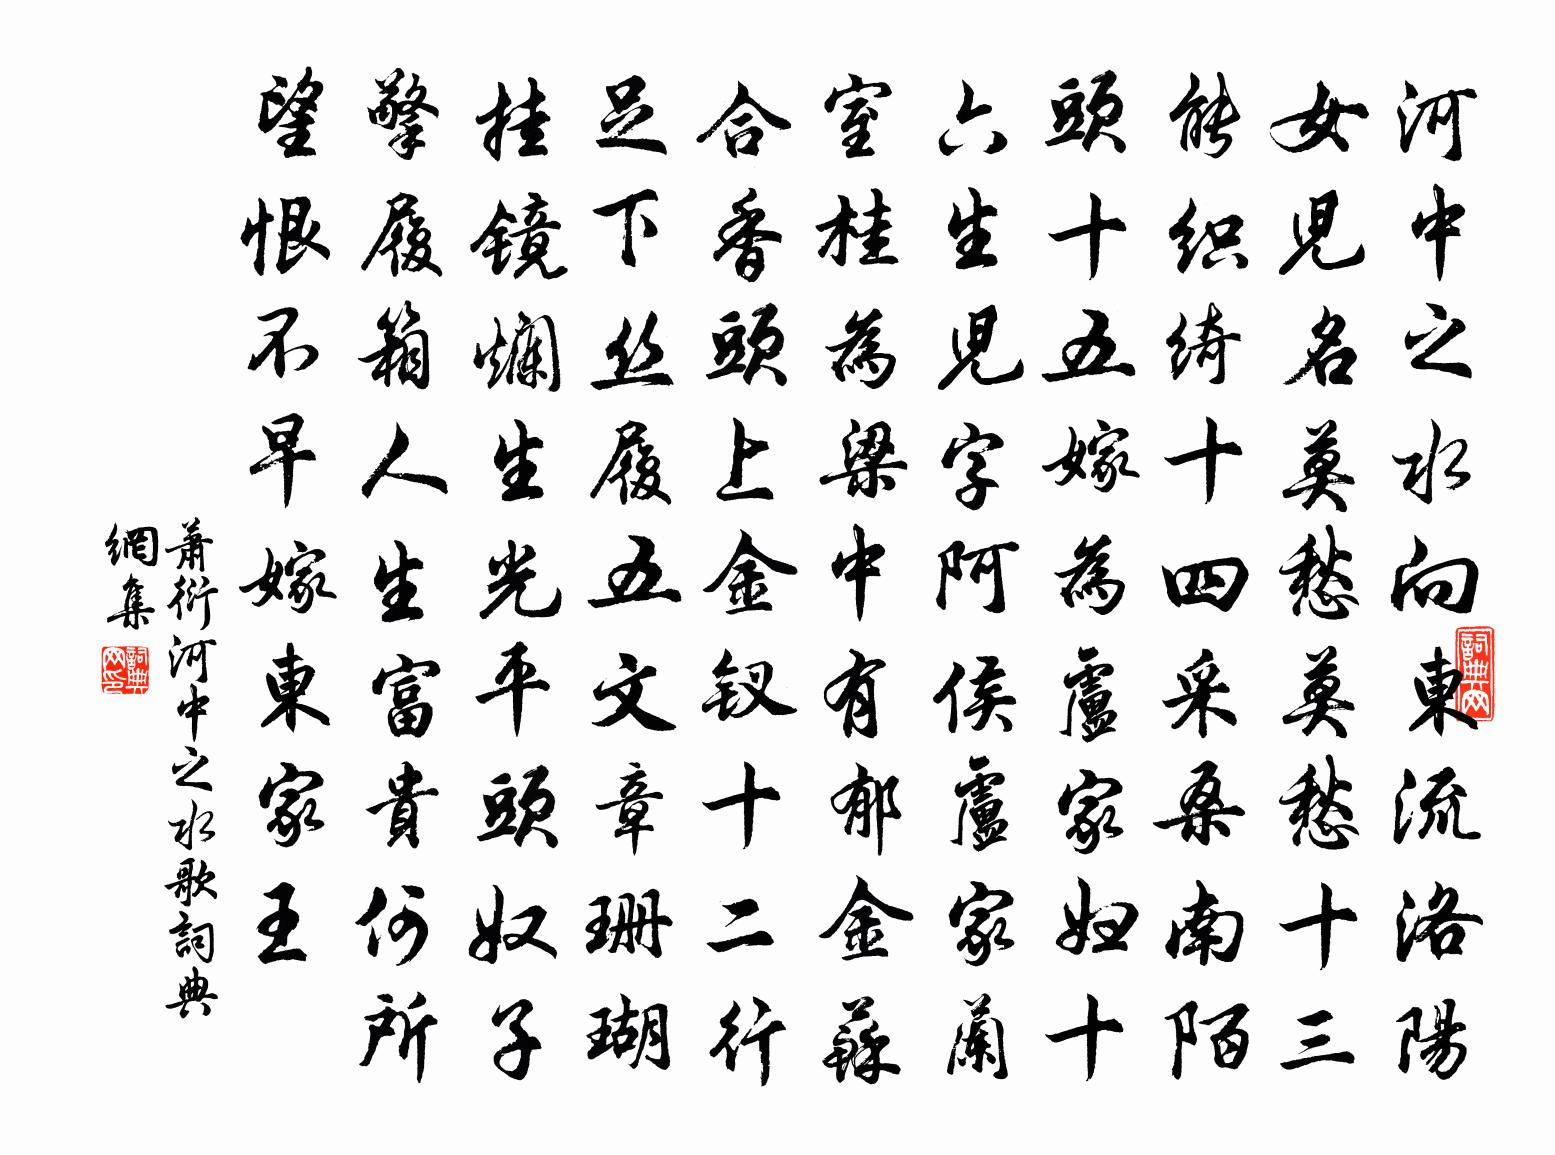 河中之水向東流洛陽
女児名莫愁莫愁十三
能织绮十四采桑南陌
頭十五嫁為盧家婦十
六生児字阿侯盧家蘭
室桂為梁中有郁金蘇
合香頭上金钗十二行
足下丝履五文章珊瑚
挂镜爛生光平頭奴子
擎履箱人生富貴何所
望恨不早嫁東家王
蕭衍河中之水歌詞典
網集
詞典网
詞典网印